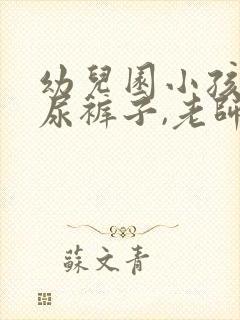 幼兒園小孩
尿褲子,老師
蘇文青